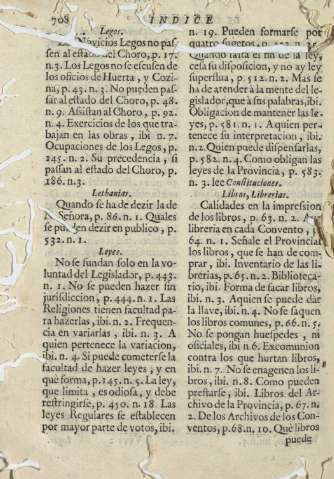 708 INDICE
Legos.
Novicios Legos no pas-
sen al estado del Choro, p. 17.
n. 3. Los Legos no se escusen de
los oficios de Huerta, y Cozi-
na, p. 43. n. 3. No pueden pas-
sar al estado del Choro, p. 48.
n. 9. Assistan al Choro, p. 92.
n. 4. Exercicios de los que tra-
bajan en las obras, ibi n. 7.
Ocupaciones de los Legos, p.
245. n. 2. Su precedencia, si
passan al estado del Choro, p.
286. n. 3.
Lethanias.
Quando se ha de dezir la de
N. Señora, p. 86. n. 1. Quales
se pueden dezir en publico, p.
532. n. 1.
Leyes.
No se fundan solo en la vo-
luntad del Legislador, p. 443.
n. 1. No se pueden hazer sin
jurisdiccion, p. 444. n. 1. Las
Religiones tienen facultad pa-
ra hazerlas, ibi n. 2. Frequen-
cia en variarlas, ibi n. 3. A
quien pertenece la variacion,
ibi n. 4. Si puede cometerse la
facultad de hazer leyes, y en
què forma, p. 145. n. 5. La ley,
que limita, es odiosa, y debe
restringirse, p. 450. n. 18. Las
leyes Regulares se establecen
por mayor parte de votos, ibi.
n. 19. Pueden formarse por
quatro sugetos, n.
Quando falta el fin de la ley,
cessa su disposicion, y no ay ley
superflua, p. 512. n. 2. Mas se
ha de atender à la mente del le-
gislador, que à sus palabras, ibi.
Obligacion de mantener las le-
yes, p. 581. n. 1. A quien per-
tenece su interpretacion, ibi
n. 2. Quien puede dispensarlas,
p. 582. n. 4. Como obligan las
leyes de la Provincia, p. 583.
n. 3. lee Constituciones.
Libros, Librerias.
Calidades en la impression
de los libros, p. 63. n. 2. Aya
libreria en cada Convento, p.
64. n. 1. Señale el Provincial
los libros, que se han de com-
prar, ibi. Inventario de las li-
brerias, p. 65. n. 2. Bibliotheca-
rio, ibi. Forma de sacar libros,
ibi n. 3. Aquien se puede dàr
la llave, ibi n. 4. No se saquen
los libros comunes, p. 66. n. 5.
No se pongan huespedes, ni
oficiales, ibi n. 6. Excomunion
contra los que hurtan libros,
ibi n. 7. No se enagenen los li-
bros, ibi n. 8. Como pueden
prestarse, ibi. Libros del Ar-
chivo de la Provincia, p. 67. n.
2. De los Archivos de los Con-
ventos, p. 68. n. 10. Què libros
puede